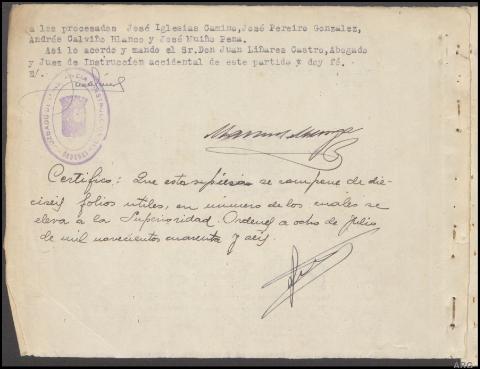 a los procesados José Iglesias Camino,José Pereiro Gonzalez,
Andrés Calviño Blanco y José Muiño Pena.
Asi lo acordo y mando el Sr.Don Juan Liñares Castro,Abogado
y Juez de Instrucción accidental de este partido y doy fé.
E/.
Certifico: Que esta se compone de die-
ciseis folios utiles, en número de los cuales se
eleva a la Superioridad. Ordenes a ocho de Julio
de mil novecientos cuarenta y seis.